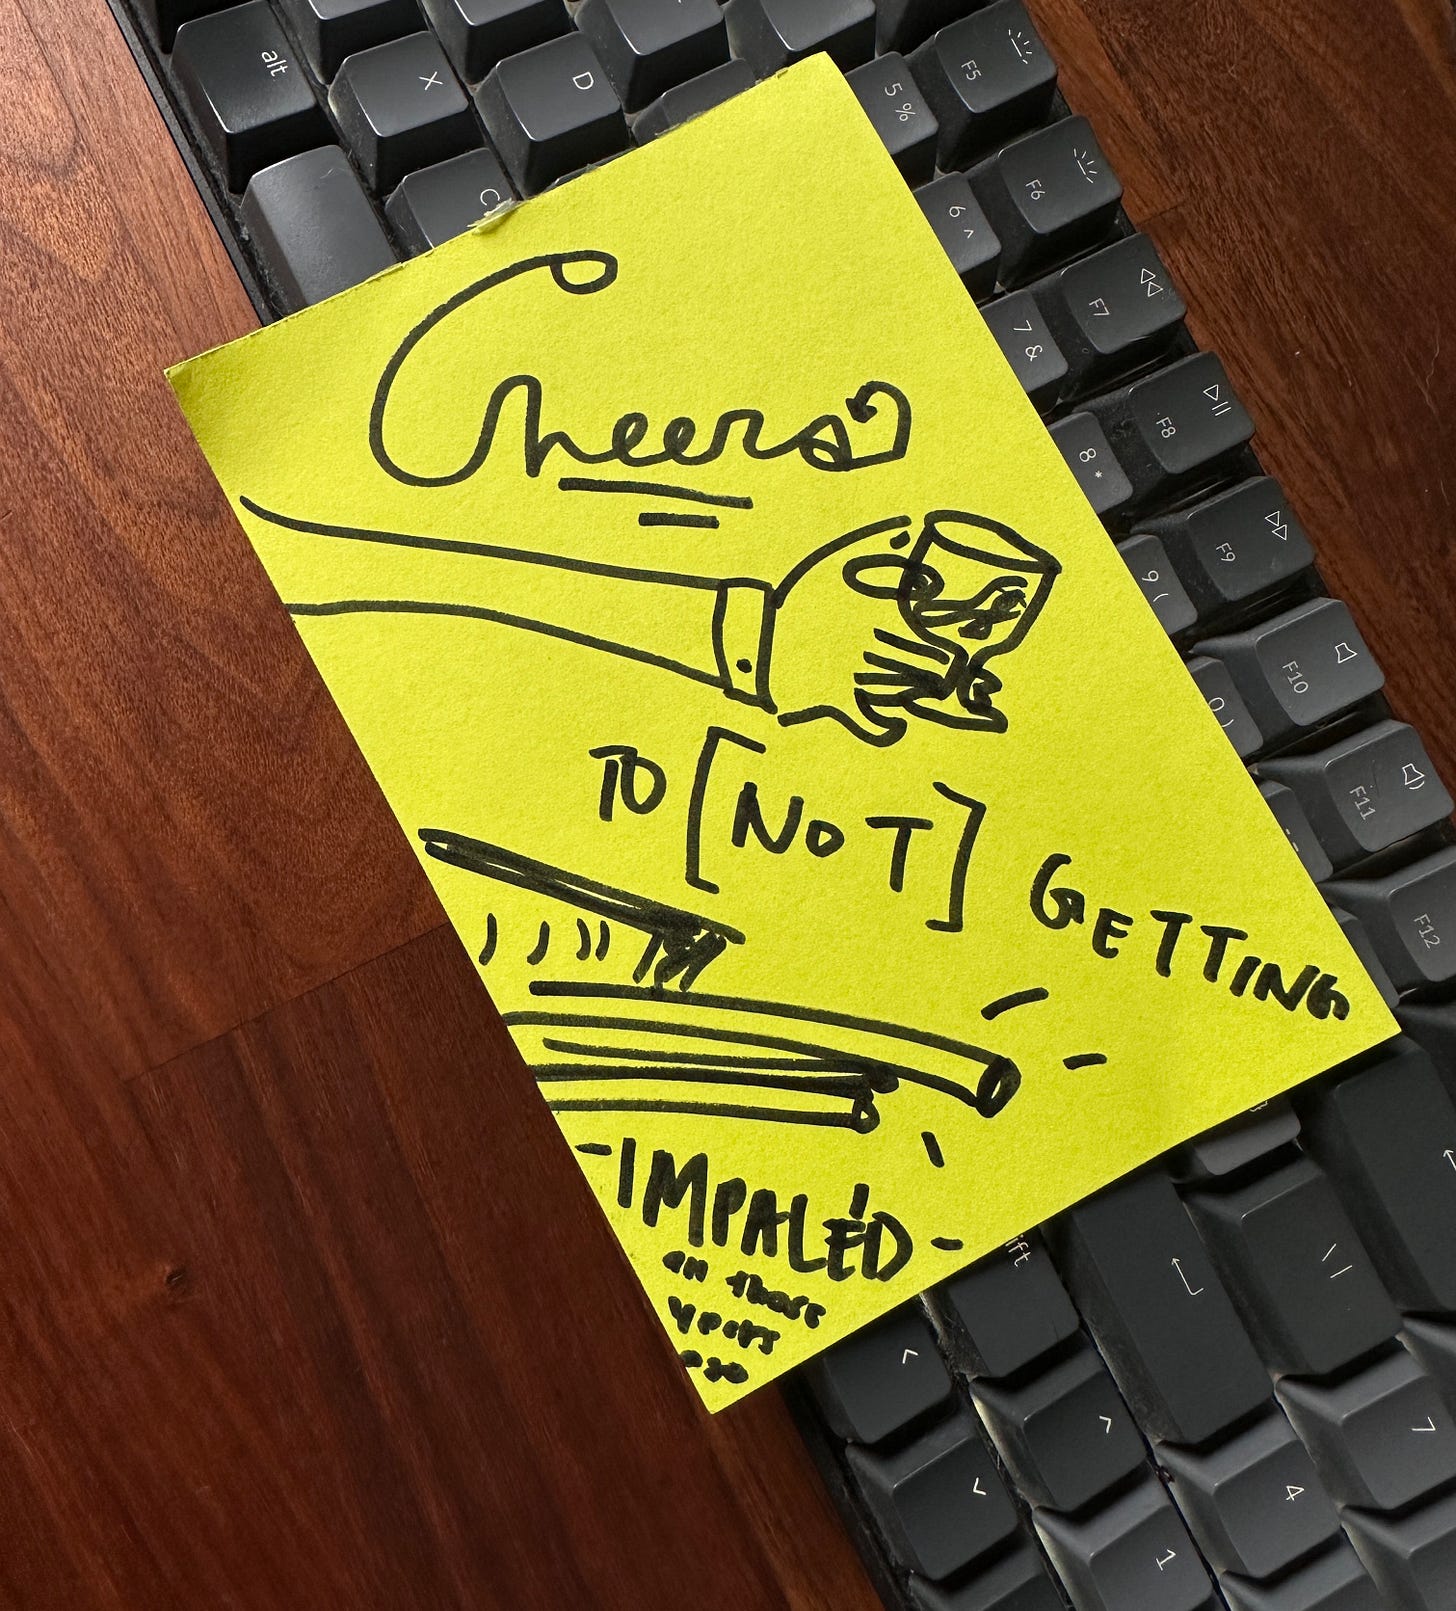 Cheers
TO [NOT] GETTING
IMPALED
on those
years
ago
alt
X
D
C
5 %
6 ^
7 &
8 *
9 (
0 )
F5
F6
F7
F8
F9
F10
F11
F12
ift
\ |
7
4
1